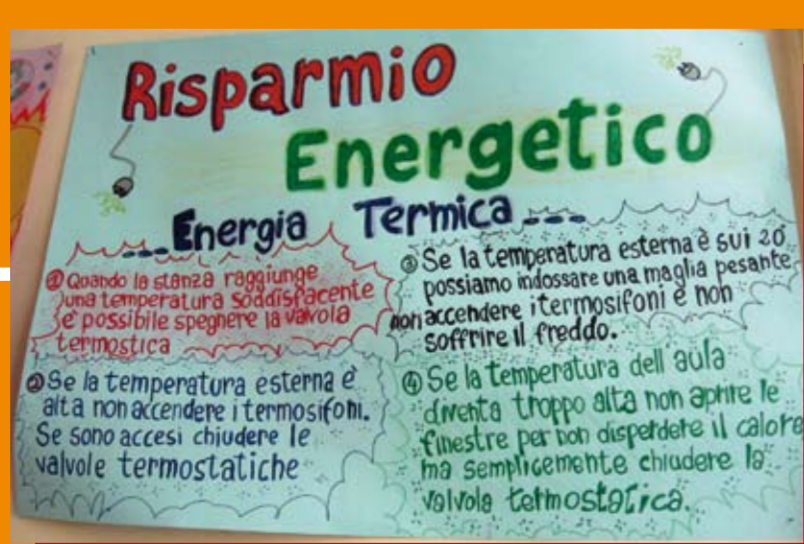 Risparmio
Energetico
...Energia Termica ...
① Quando la stanza raggiunge
una temperatura soddisfacente
e' possibile spegnere la valvola
termostica
② Se la temperatura esterna è
alta non accendere i termosifoni.
Se sono accesi chiudere le
valvole termostatiche
③ Se la temperatura esterna è sui 20°
possiamo indossare una maglia pesante
non accendere i termosifoni e non
soffrire il freddo.
④ Se la temperatura dell'aula
diventa troppo alta non aprire le
finestre per non disperdere il calore
ma semplicemente chiudere la
valvola termostatica.